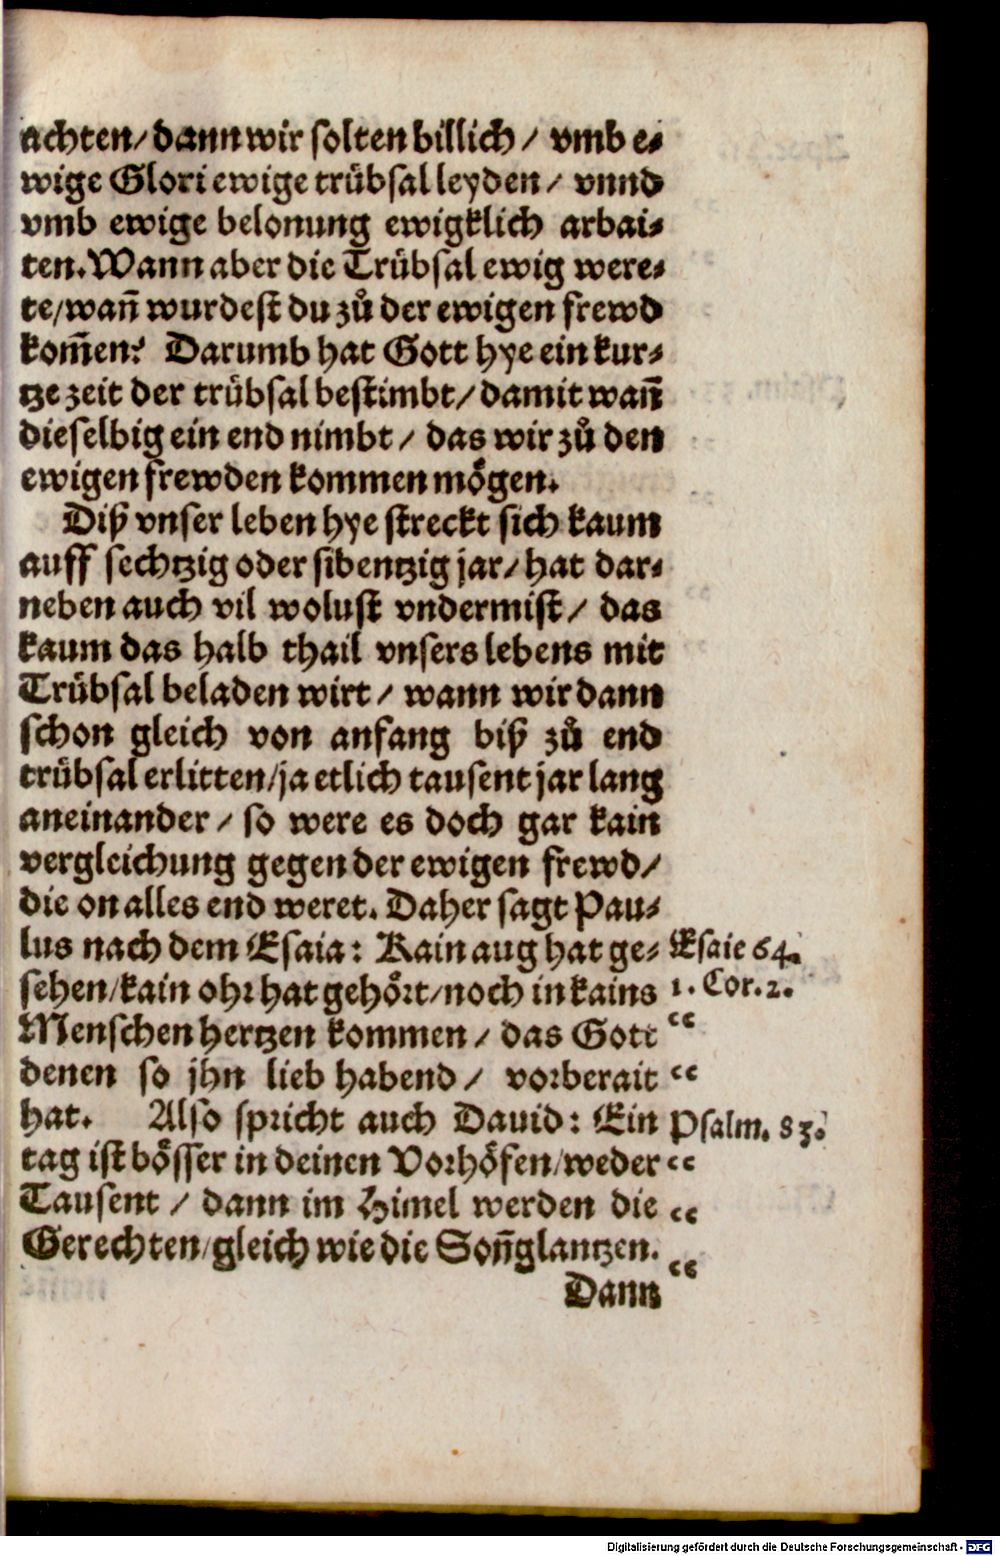 achten/ dann wir solten billich/ vmb e⸗
wige Glori ewige trübsal leyden/ vnnd
vmb ewige belonung ewigklich arbai⸗
ten. Wann aber die Trübsal ewig were⸗
te/ wañ wurdest du zů der ewigen frewd
kom̃en? Darumb hat Gott hye ein kur⸗
tze zeit der trübsal bestimbt/ damit wañ
dieselbig ein end nimbt/ das wir zů den
ewigen frewden kommen mögen.
Diß vnser leben hye streckt sich kaum
auff sechtzig oder sibentzig jar/ hat dar⸗
neben auch vil wolust vndermist/ das
kaum das halb thail vnsers lebens mit
Trübsal beladen wirt/ wann wir dann
schon gleich von anfang biß zů end
trübsal erlitten/ ja etlich tausent jar lang
aneinander/ so were es doch gar kain
vergleichung gegen der ewigen frewd/
die on alles end weret. Daher sagt Pau⸗
lus nach dem Esaia: Kain aug hat ge⸗ Esaie 64.
sehen/ kain ohr hat gehört/ noch in kains 1. Cor. 2.
Menschen hertzen kommen/ das Gott “
denen so jhn lieb habend/ vorberait “
hat. Also spricht auch Dauid: Ein Psalm. 83.
tag ist bösser in deinen Vorhöfen/ weder “
Tausent/ dann im Himel werden die “
Gerechten/ gleich wie die Soñ glantzen. “
Dann
Digitalisierung gefördert durch die Deutsche Forschungsgemeinschaft - DFG